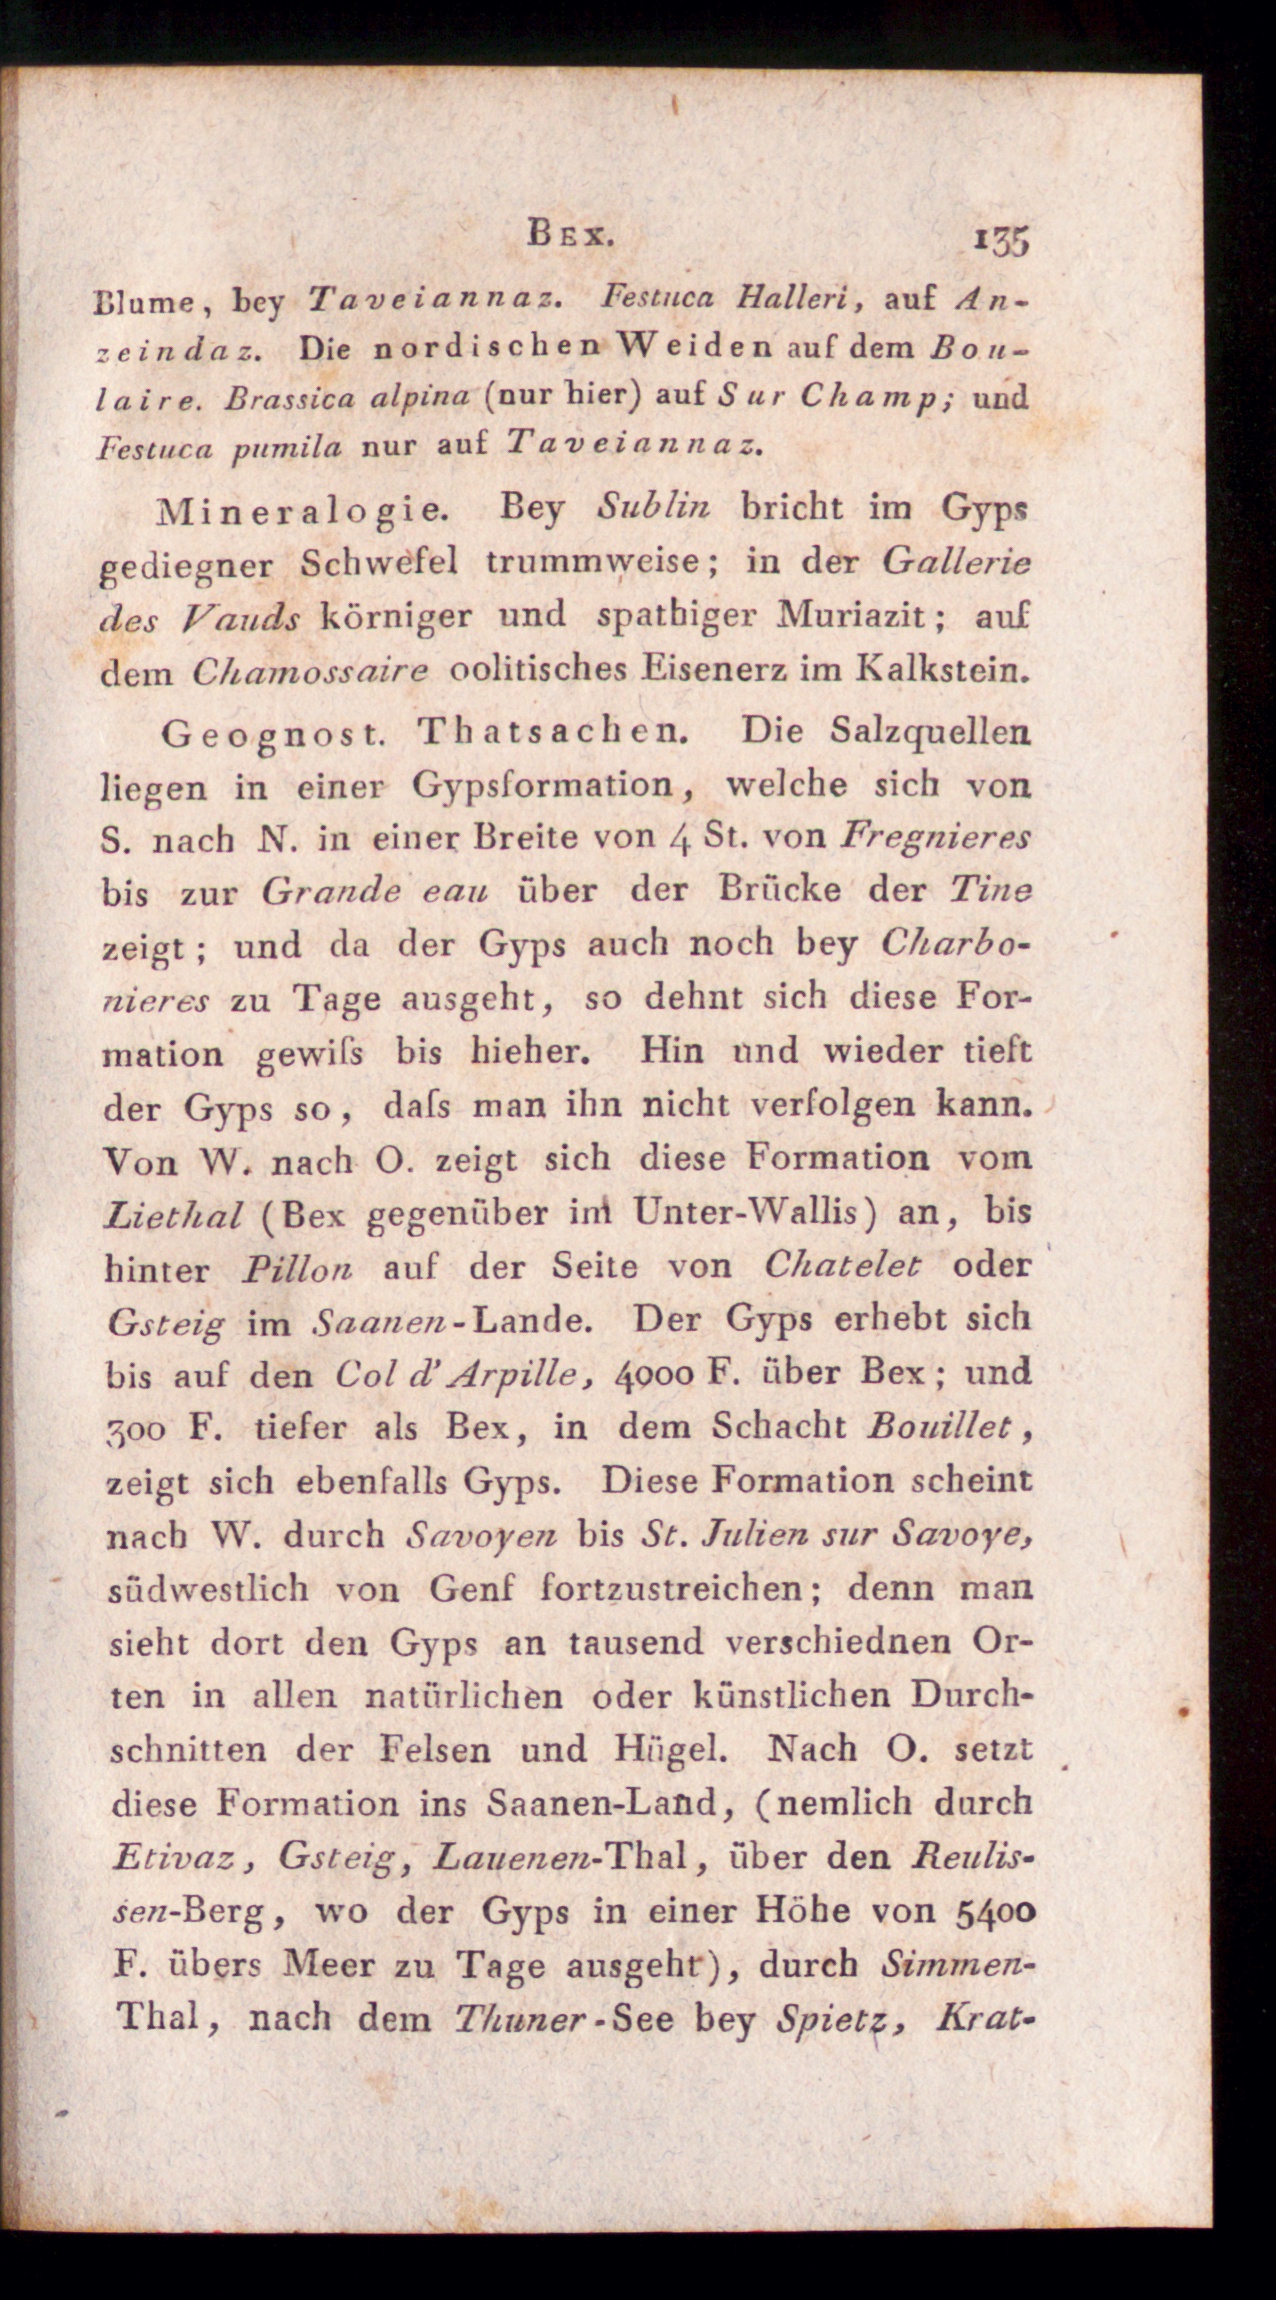 BEX. 135
Blume, bey Taveiannaz. Festuca Halleri, auf An-
zeindaz. Die nordischen Weiden auf dem Bou-
laire. Brassica alpina (nur hier) auf Sur Champ; und
Festuca pumila nur auf Taveiannaz.
Mineralogie. Bey Sublin bricht im Gyps
gediegner Schwefel trummweise; in der Gallerie
des Vauds körniger und spathiger Muriazit; auf
dem Chamossaire oolitisches Eisenerz im Kalkstein.
Geognost. Thatsachen. Die Salzquellen
liegen in einer Gypsformation, welche sich von
S. nach N. in einer Breite von 4 St. von Fregnieres
bis zur Grande eau über der Brücke der Tine
zeigt; und da der Gyps auch noch bey Charbo-
nieres zu Tage ausgeht, so dehnt sich diese For-
mation gewiſs bis hieher. Hin und wieder tieft
der Gyps so, daſs man ihn nicht verfolgen kann.
Von W. nach O. zeigt sich diese Formation vom
Liethal (Bex gegenüber im Unter-Wallis) an, bis
hinter Pillon auf der Seite von Chatelet oder
Gsteig im Saanen-Lande. Der Gyps erhebt sich
bis auf den Col d'Arpille, 4000 F. über Bex; und
300 F. tiefer als Bex, in dem Schacht Bouillet,
zeigt sich ebenfalls Gyps. Diese Formation scheint
nach W. durch Savoyen bis St. Julien sur Savoye,
südwestlich von Genf fortzustreichen; denn man
sieht dort den Gyps an tausend verschiednen Or-
ten in allen natürlichen oder künstlichen Durch-
schnitten der Felsen und Hügel. Nach O. setzt
diese Formation ins Saanen-Land, (nemlich durch
Etivaz, Gsteig, Lauenen-Thal, über den Reulis-
sen-Berg, wo der Gyps in einer Höhe von 5400
F. übers Meer zu Tage ausgeht), durch Simmen-
Thal, nach dem Thuner-See bey Spietz, Krat-